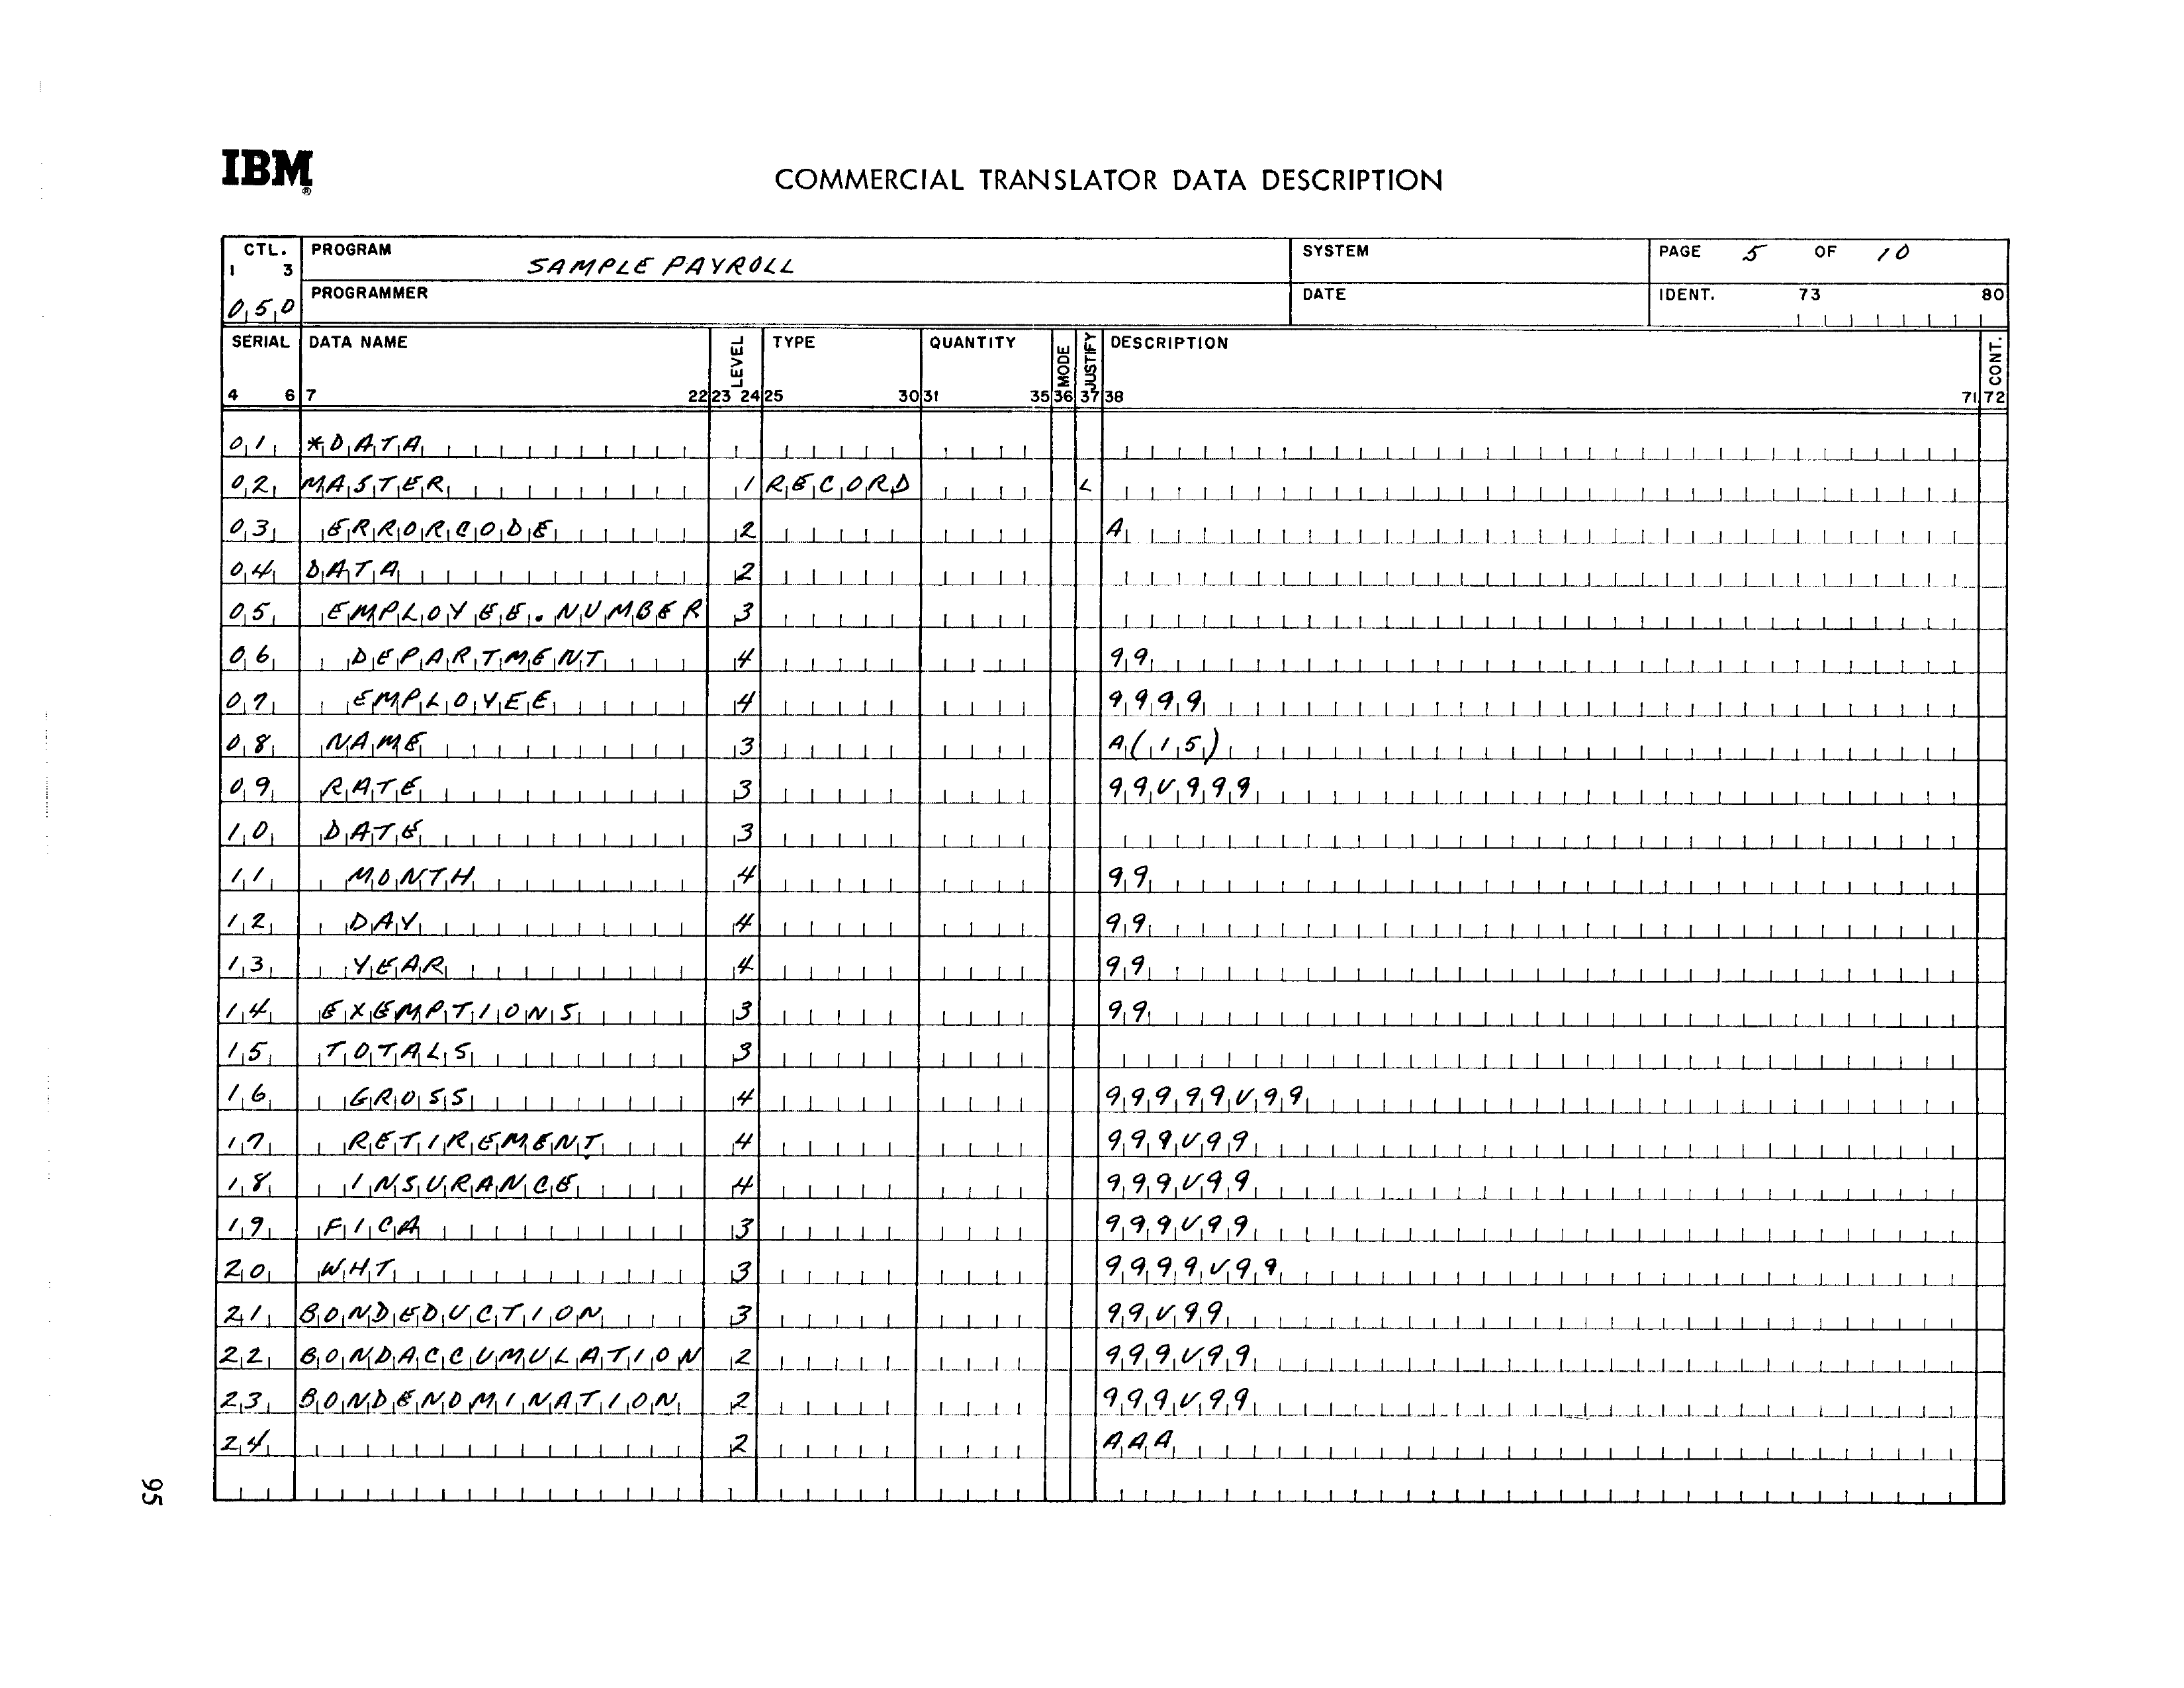 IBM®
COMMERCIAL TRANSLATOR DATA DESCRIPTION
CTL. PROGRAM SAMPLE PAYROLL SYSTEM PAGE 5 OF 10
1 3
050 PROGRAMMER DATE IDENT. 73 80
SERIAL DATA NAME LEVEL TYPE QUANTITY MODE JUSTIFY DESCRIPTION CONT.
4 6 7 22 23 24 25 30 31 35 36 37 38 71 72
01 *DATA
02 MASTER 1 RECORD L
03 ERRORCODE 2 A
04 DATA 2
05 EMPLOYEE.NUMBER 3
06 DEPARTMENT 4 99
07 EMPLOYEE 4 9999
08 NAME 3 A(15)
09 RATE 3 99V999
10 DATE 3
11 MONTH 4 99
12 DAY 4 99
13 YEAR 4 99
14 EXEMPTIONS 3 99
15 TOTALS 3
16 GROSS 4 99999V99
17 RETIREMENT 4 999V99
18 INSURANCE 4 999V99
19 FICA 3 999V99
20 WHT 3 9999V99
21 BONDEDUCTION 3 99V99
22 BONDACCUMULATION 2 999V99
23 BONDENOMINATION 2 999V99
24 2 AAA
95